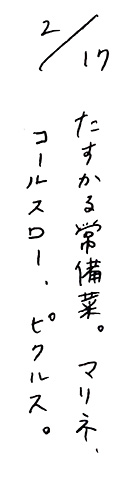 2/17
たすかる常備菜。マリネ、
コールスロー、ピクルス。